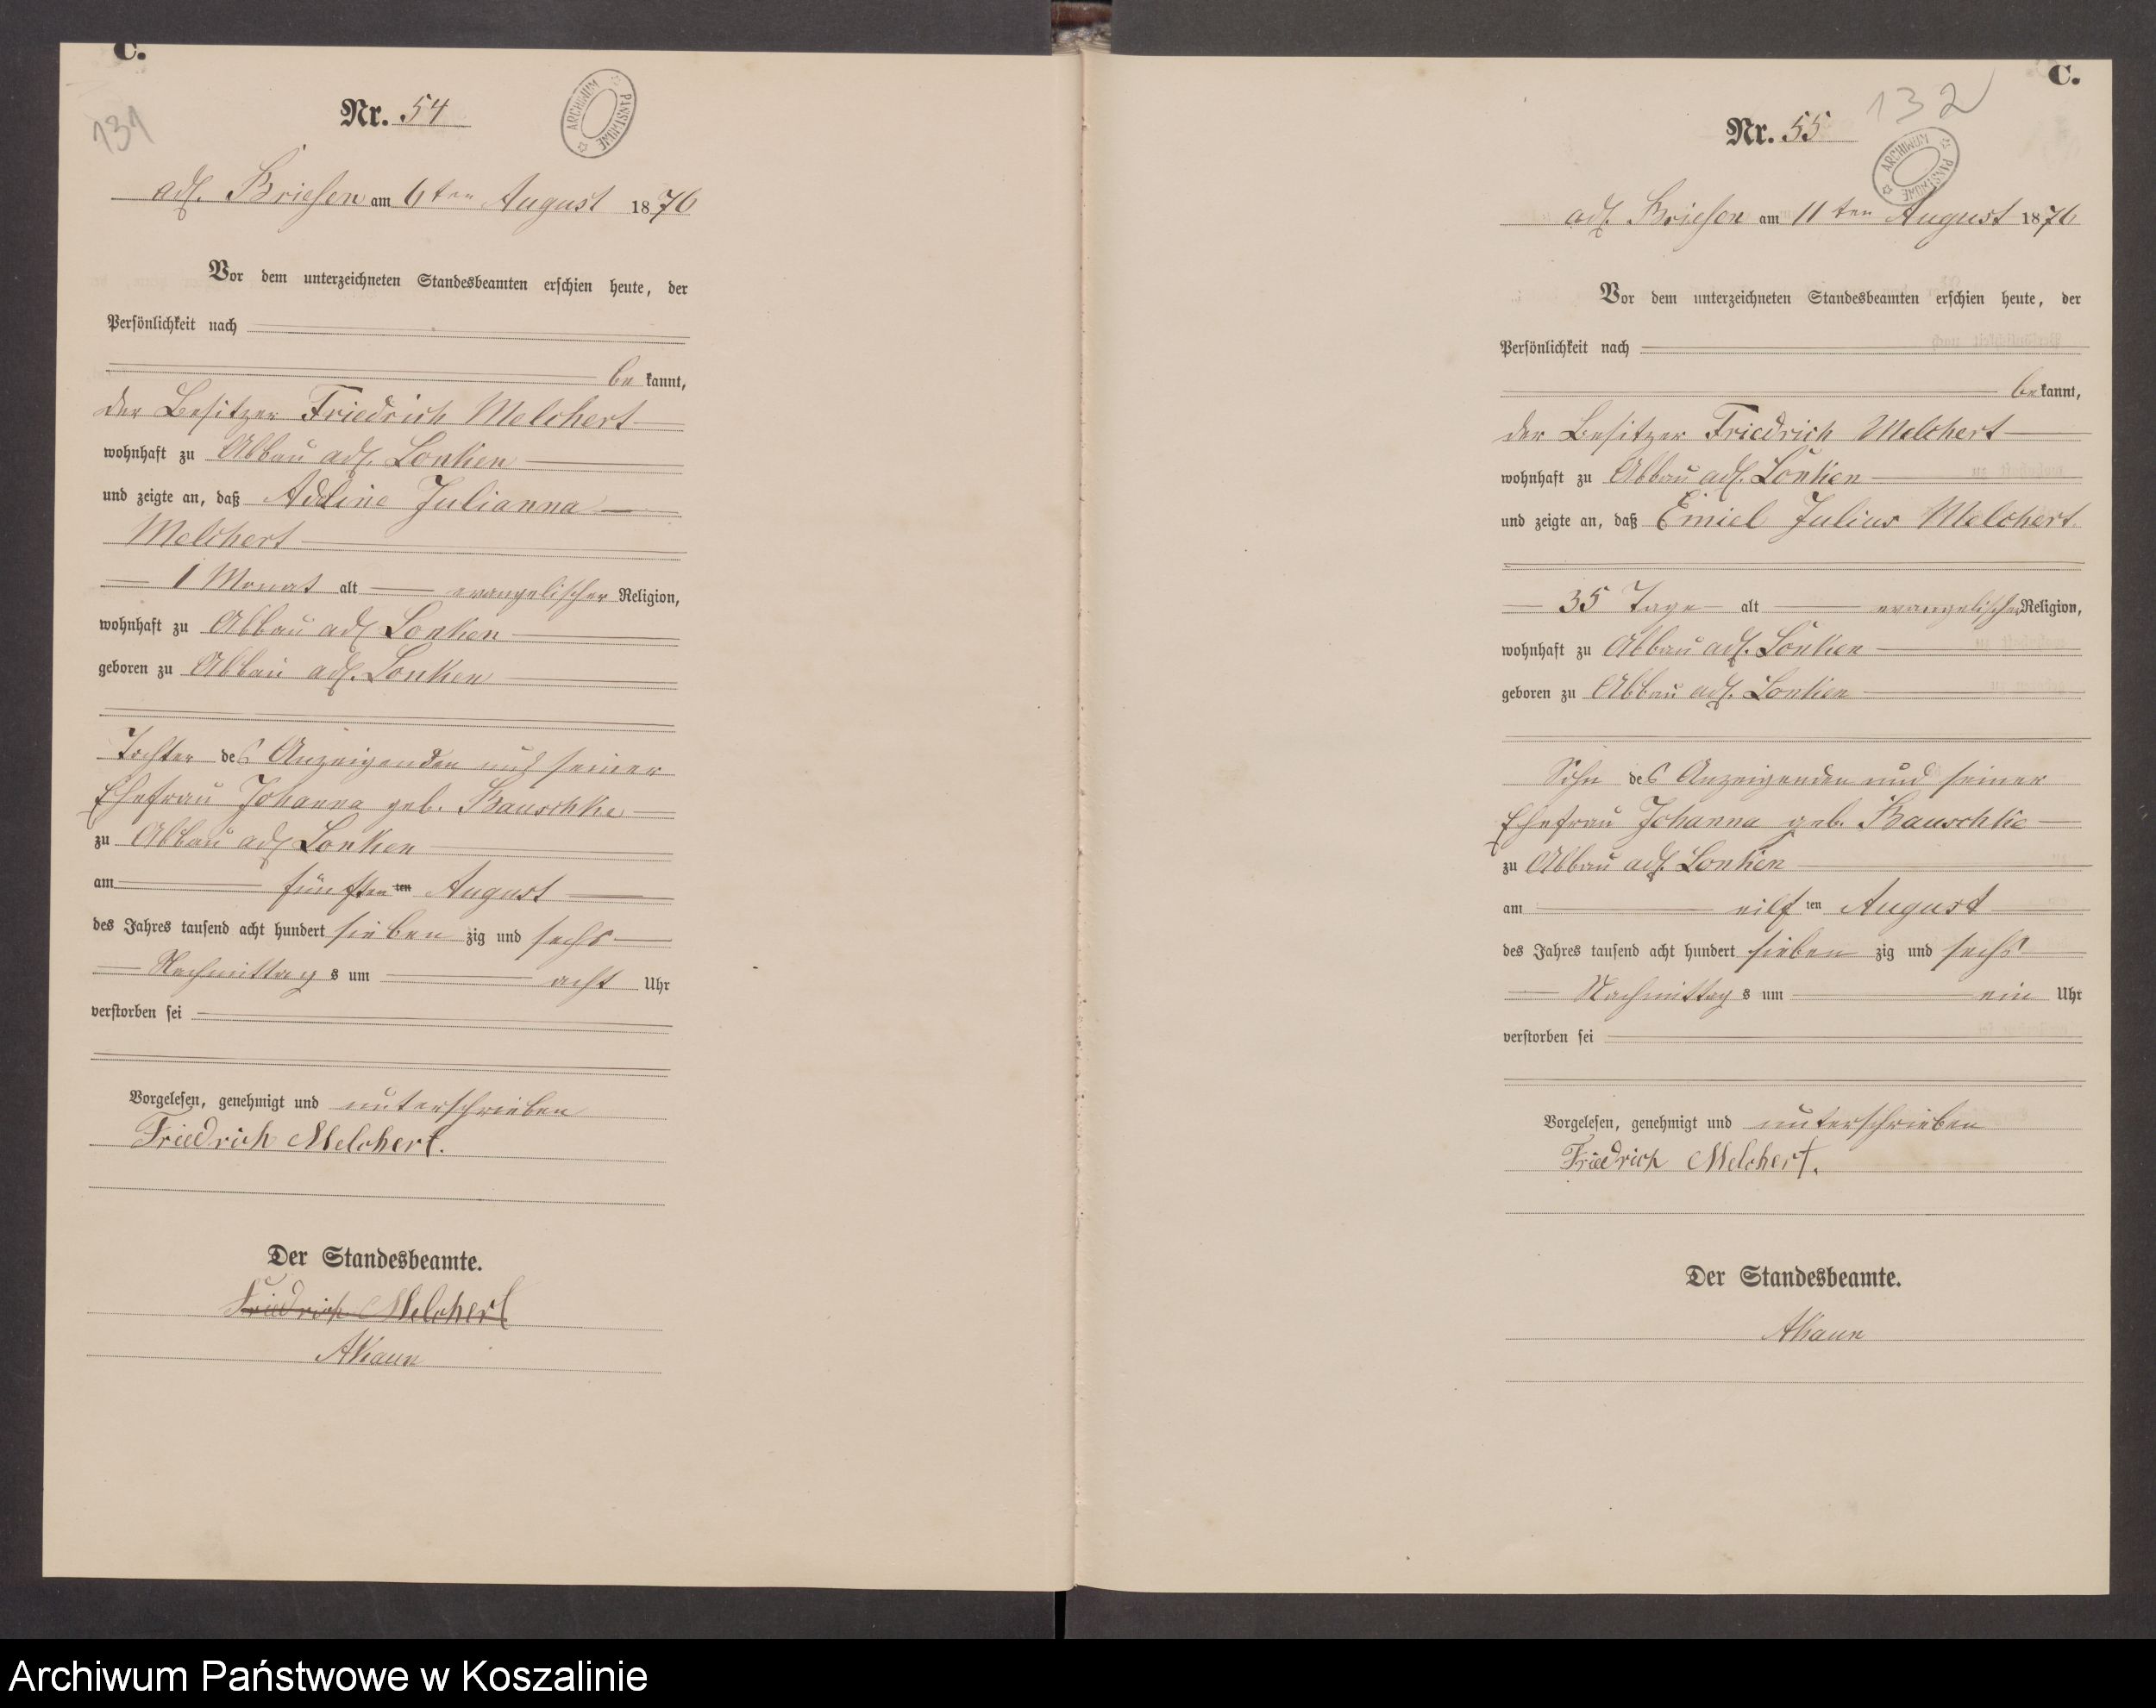 C.
131
Nr. 54
ARCHIWUM PAŃSTWOWE
adl. Briesen am 6ten August 1876
Vor dem unterzeichneten Standesbeamten erschien heute, der
Persönlichkeit nach
be kannt,
der Besitzer Friedrich Melchert
wohnhaft zu Abbau adl. Lonken
und zeigte an, daß Adeline Julianna
Melchert
1 Monat alt evangelischer Religion,
wohnhaft zu Abbau adl. Lonken
geboren zu Abbau adl. Lonken
Tochter des Anzeigenden und seiner
Ehefrau Johanna geb. Bauschke
zu Abbau adl. Lonken
am fünften ten August
des Jahres tausend acht hundert sieben zig und sechs
Nachmittag s um acht Uhr
verstorben sei
Vorgelesen, genehmigt und unterschrieben
Friedrich Melchert.
Der Standesbeamte.
Friedrich Melchert
AKaun
C.
132
Nr. 55
ARCHIWUM PAŃSTWOWE
adl. Briesen am 11ten August 1876
Vor dem unterzeichneten Standesbeamten erschien heute, der
Persönlichkeit nach
be kannt,
der Besitzer Friedrich Melchert
wohnhaft zu Abbau adl. Lonken
und zeigte an, daß Emiel Julius Melchert
35 Tage alt evangelischer Religion,
wohnhaft zu Abbau adl. Lonken
geboren zu Abbau adl. Lonken
Sohn des Anzeigenden und seiner
Ehefrau Johanna geb. Bauschke
zu Abbau adl. Lonken
am eilf ten August
des Jahres tausend acht hundert sieben zig und sechs
Nachmittag s um ein Uhr
verstorben sei
Vorgelesen, genehmigt und unterschrieben
Friedrich Melchert.
Der Standesbeamte.
AKaun
Archiwum Państwowe w Koszalinie